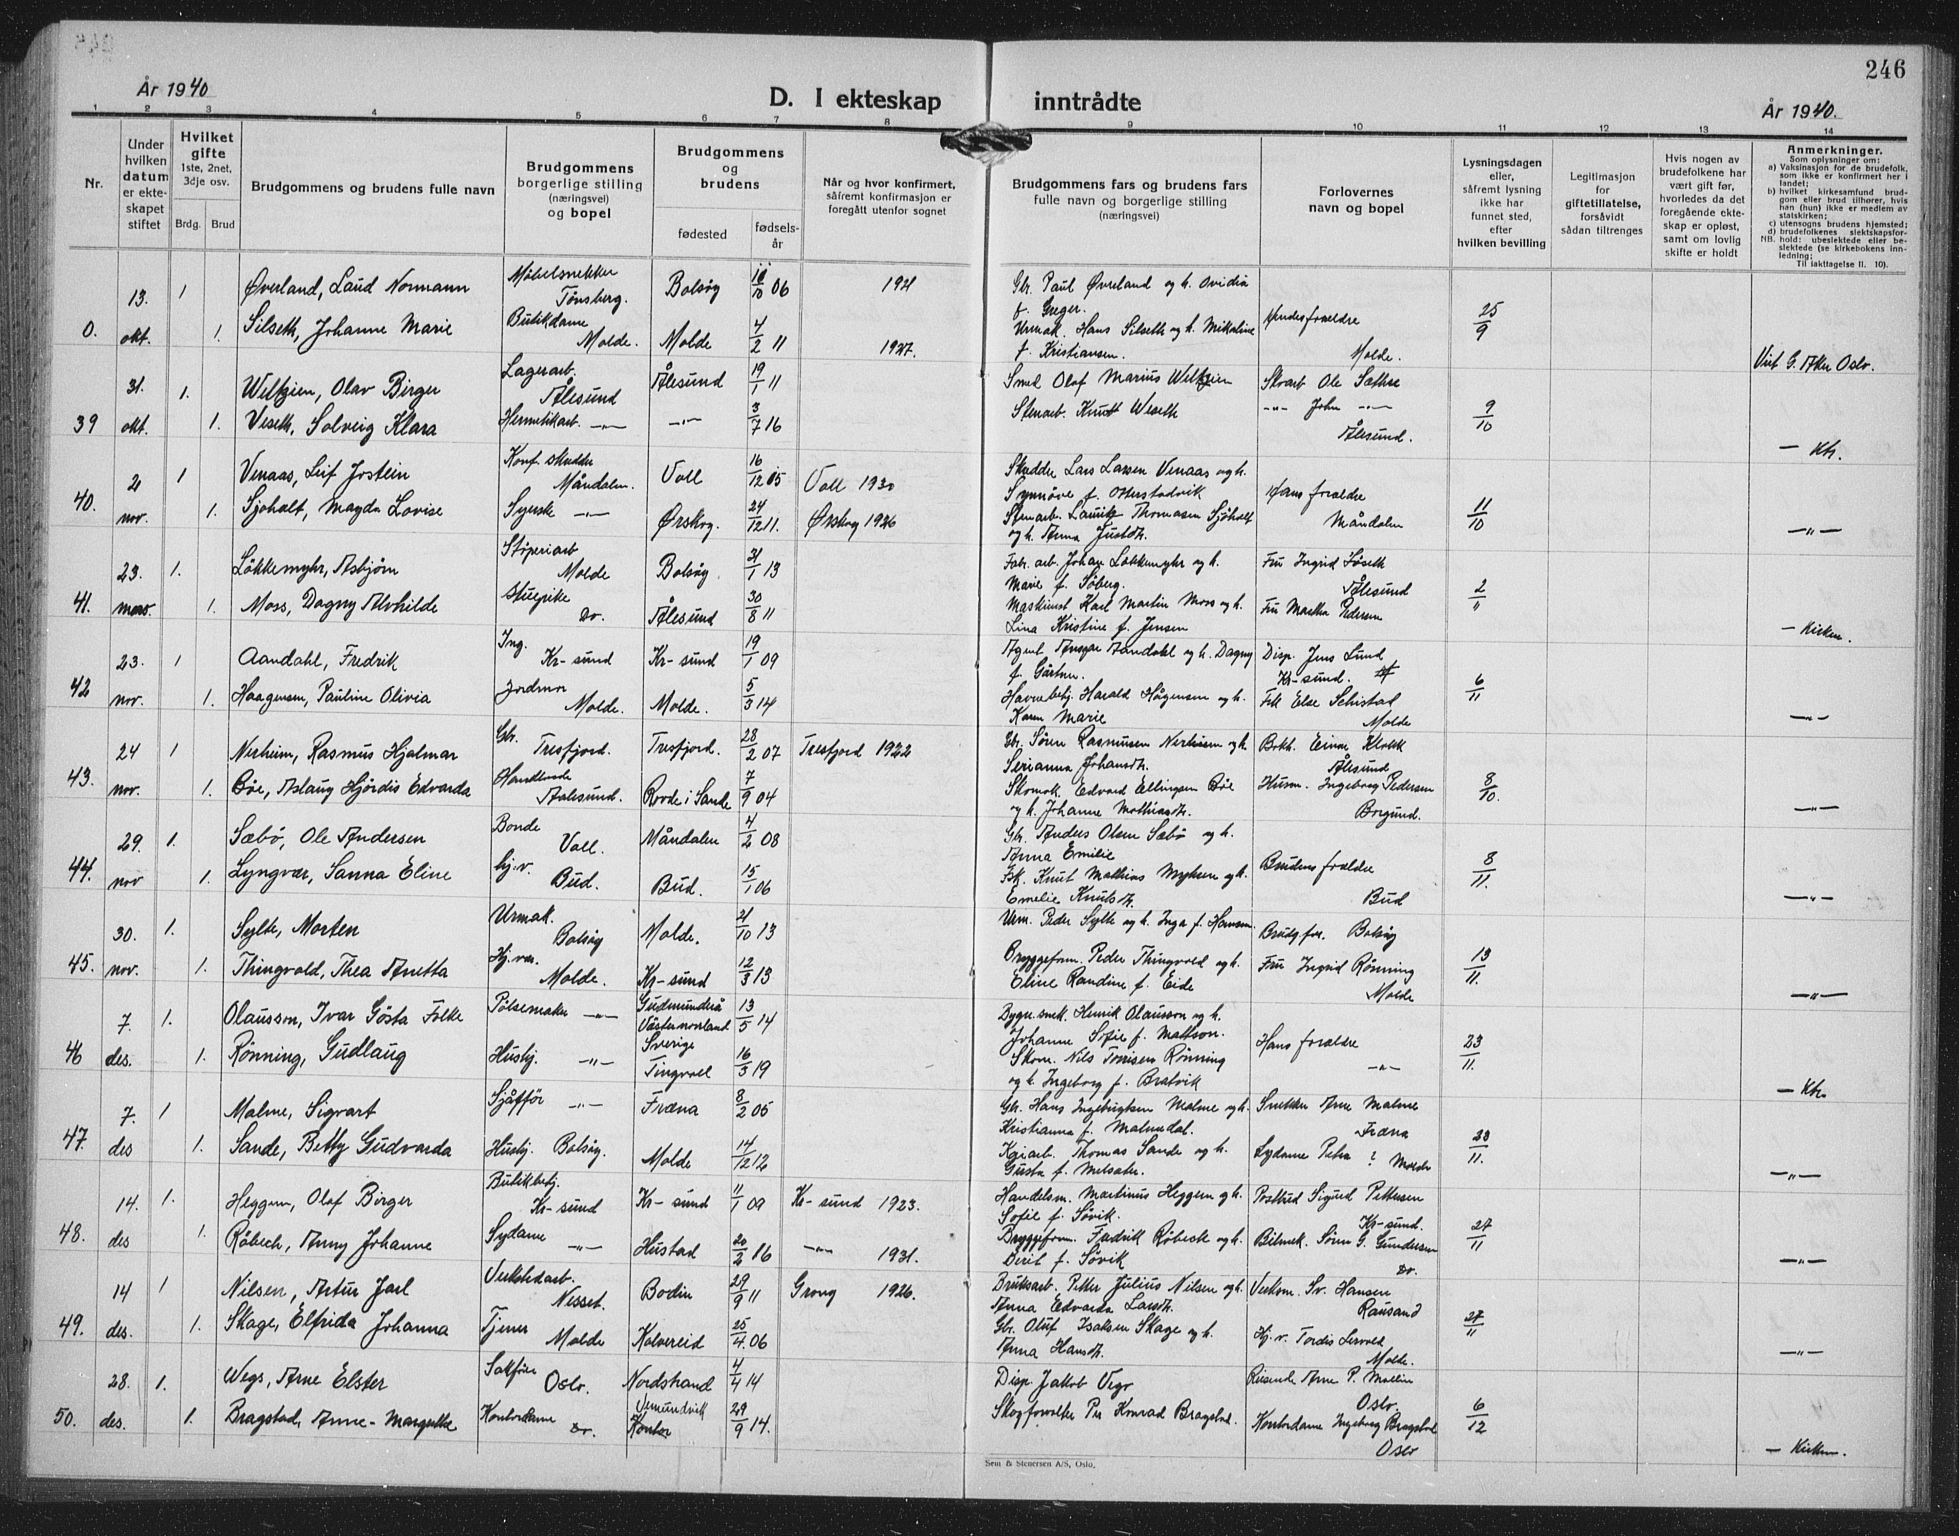 År 1940
D. I ekteskap inntrådte
246
År 1940.
1 2 3 4 5 6 7 8 9 10 11 12 13 14
Nr.
Under hvilken datum er ekteskapet stiftet
Hvilket gifte
1ste, 2net, 3dje osv.
Brdg. Brud
Brudgommens og brudens fulle navn
Brudgommens borgerlige stilling (næringsvei) og bopel
Brudgommens og brudens
fødested
fødselsår
Når og hvor konfirmert, såfremt konfirmasjon er foregått utenfor sognet
Brudgommens fars og brudens fars fulle navn og borgerlige stilling (næringsvei)
Forlovernes navn og bopel
Lysningsdagen eller, såfremt lysning ikke har funnet sted, efter hvilken bevilling
Legitimasjon for giftetillatelse, forsåvidt sådan tiltrenges
Hvis nogen av brudefolkene har vært gift før, hvorledes da det foregående ekteskap er opløst, samt om lovlig skifte er holdt
Anmerkninger.
Som oplysninger om:
a) Vaksinasjon for de brudefolk, som ikke er konfirmert her i landet;
b) hvilket kirkesamfund brudgom eller brud tilhører, hvis han (hun) ikke er medlem av statskirken;
c) utensogns brudens hjemsted;
d) brudefolkenes slektskapsforhold: ubeslektede eller beslektede (se kirkebokens innledning;
NB.
Til iakttagelse II. 10).
13. 1 Øverland, Laud Normann Møbelsnekker Tønsberg. Bolsøy 10/10 06 1921 Gbr. Paul Øvreland og h. Ovidia f. Greger.
0. okt. 1. Silseth, Johanne Marie Butikdame Molde. Molde 4/2 11 1927. Urmak. Hans Silseth og h. Mikaline f. Kristiansen. Hendes foreldre Molde. 25/9 Viet G. Aker Oslo.
31. 1. Weltzien, Olav Birger Lagerarb. Ålesund Ålesund 19/1 11 Smed Olaf Marius Weltzien Skoarb Ole Sæthre
39 okt. 1. Veseth, Solveig Klara Hermetikarb. —„— —„— 3/7 16 Stenarb. Knut Weseth —„— John —„— Ålesund. 9/10 — Ktr.
2 1 Venaas, Leif Jostein Konf. skredder Måndalen. Voll 16/12 05 Voll 1920 Skredder Lars Larsen Venaas og h. Synnøve f. Otterstadvik
40. nov. 1. Sjøholt, Magda Lovise Syerske —„— Ørskog. 24/12 11. Ørskog 1926 Stenarb. Lauritz Thomasen Sjøholt og h. Anna Justdt. Hans foreldre Måndalen 11/10 —„—
23. 1. Løkkemyhr, Asbjørn Støperiarb Molde Bolsøy 31/1 13 Fabr. arb. Johan Løkkemyhr og h. Marie f. Søberg. Fru Ingrid Løseth Ålesund
41. 1. Moss, Dagny Alvhilde Stuepike Do. Ålesund 30/8 11 Maskinist Karl Martin Moss og h. Lina Kristine f. Jensen Fru Martha Pedersen 2/11 — Kirken.
23. 1 Aandahl, Fredrik Ing. Kr-sund Kr-sund 19/1 09 Agent Ansgar Aandahl og h. Dagny f. Gärtner. Disp. Jens Lund Kr-sund.
42 nov. 1. Haagensen, Pauline Olivia Jordmor Molde. Molde. 5/3 14 Havnebetj. Harald Hågensen og h. Karen Marie Frk Else Schistad Molde 6/11 —„—
24 1 Nerheim, Rasmus Hjalmar Gbr. Tresfjord. Tresfjord. 28/2 07 Tresfjord 1922 Gbr. Søren Rasmusen Nerheim og h. Serianna Johansdt. Bokh. Einar Klokk Ålesund
43. nov. 1. Bøe, Aslaug Hjørdis Edvarda Handlende Aalesund. Rovde i Sande 7/9 04 Skomak. Edvard Ellingsen Bøe og h. Johanne Mathiasdt. Husm. Ingeborg Pedersen Borgund. 8/10. —„—
29. 1. Sæbø, Ole Andersen Bonde Voll. Måndalen 4/2 08 Gbr. Anders Olsen Sæbø og h. Anna Emilie
44. nov 1. Lyngvær, Sanna Eline Hj. v. Bud. Bud. 15/1 06 Fisk. Knut Mathias Myhren og h. Emelie Knutsdt. Brudens foreldre Bud 8/11. —„—
30. 1. Sylte, Morten Urmak. Bolsøy Molde. 21/10 13 Urm. Peder Sylte og h. Inga f. Hansen. Brudg. for. Bolsøy
45. nov. 1. Thingvold, Thea Anetta Hj. vær. Molde. Kr-sund 12/3 13 Bryggeform. Peder Thingvold og h. Eline Randine f. Eide Fru Ingrid Rønning Molde 13/11. —„—
7. 1. Olausson, Ivar Gösta Folke Pølsemaker —„— Gudmundrå Västernorrland Sverige 13/5 14 Bygn. snek. Henrik Olausson og h. Johanne Sofie f. Mattson.
46 des. 1. Rønning, Gudlaug Husbj. —„— Tingvoll 16/3 19 Skom. Nils Tomsen Rønning og h. Ingeborg f. Bratvik Hans foreldre —„— 23/11. — Ktr.
7. 1 Malme, Sigvart Sjåffør —„— Fræna 8/2 05 Gbr. Hans Ingebrigtsen Malme og h. Kristianna f. Malmedal. Snekker Arne Malme Fræna
47. des 1. Sande, Betty Gudvarda Husbj. Bolsøy. Molde 14/12 12 Kaiarb. Thomas Sande og h. Gusta f. Melsæter. Sydame Petra ? Molde 23/11. —„—
14. 1. Heggem, Olaf Birger Butikbetj. Kr-sund Kr-sund 11/1 09 Kr-sund 1923. Handelsm. Martinus Heggem og h. Sofie f. Søvik. Postbud Sigurd Pettersen Kr-sund.
48. des 1. Råbech, Anny Johanne Sydame —„— Hustad 20/2 16 —„— 1931. Bryggeform. Fredrik Røbeck og h. Berit f. Søvik Bilmek. Søren G. Gundersen Do. 27/11 —„—
14 1 Nilsen, Artur Jarl Verkstedarb. Nesset. Bodin 29/9 11 Grong 1926. Bruksarb. Petter Julius Nilsen og h. Anna Edvarda Larsdt. Verksm. Sv. Hansen Rausand
49. des. 1. Skage, Elfrida Johanna Tjener Molde Kolvereid 25/4 06 Gbr. Oluf Isaksen Skage og h. Anna Hansdt. Hj. v. Tordis Lervold Molde. 27/11 —„—
28. 1. Vego, Arne Elster Sakfører Oslo. Nordstrand 4/4 14 Disp. Jakob Vego Reisende Arne P. Mollin Oslo.
50. des. 1. Bragstad, Anne-Margrethe Kontordame Do. Vemundvik 29/9 14. Skogforvalter Per Konrad Bragstad. Kontordame Ingeborg Bragstad Oslo 6/12 — Kirken.
Sem & Stenersen A/S, Oslo.